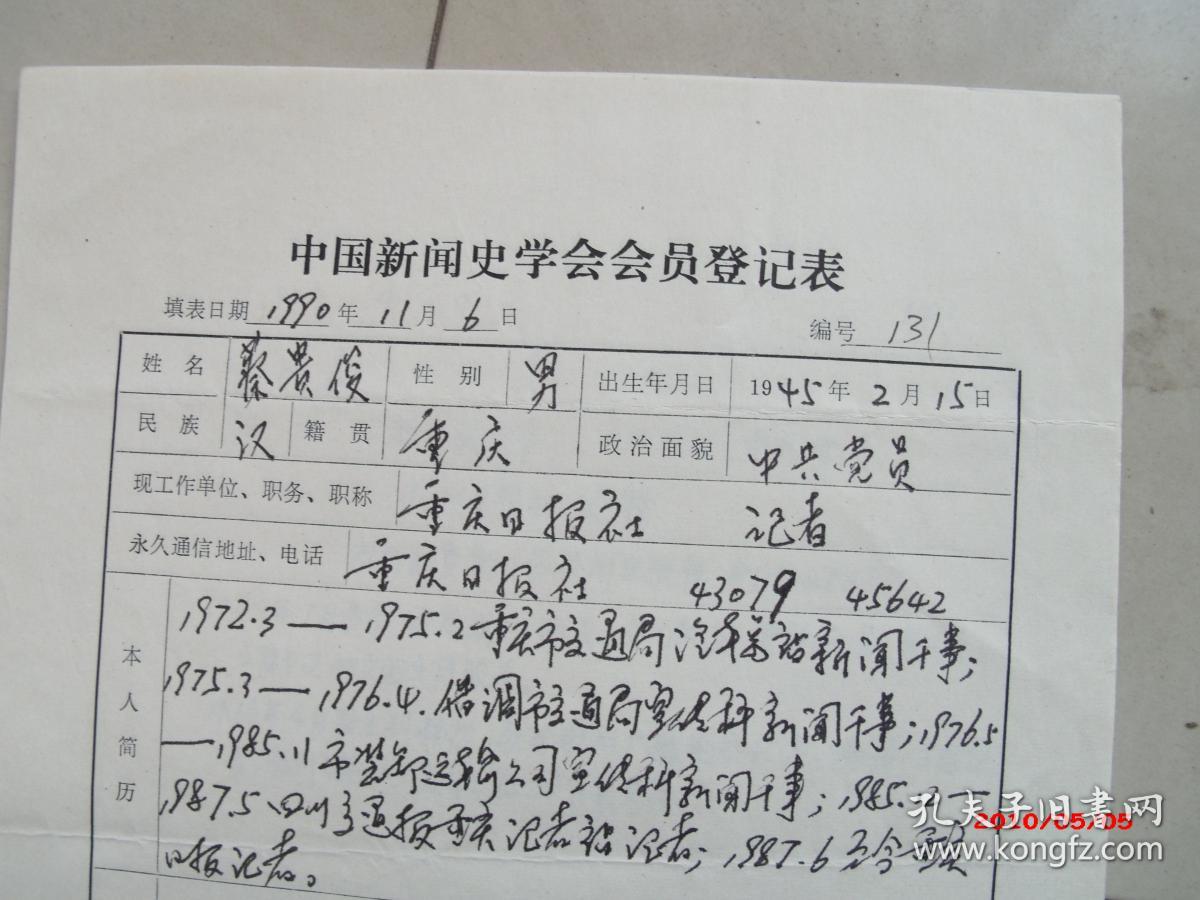 中国新闻史学会会员登记表
填表日期 1990 年 11 月 6 日
编号 131
姓 名 蔡贵俊 性 别 男 出生年月日 1945年 2 月 15日
民 族 汉 籍 贯 重庆 政治面貌 中共党员
现工作单位、职务、职称 重庆日报社 记者
永久通信地址、电话 重庆日报社 43079 45642
本人简历
1972.3 — 1975.2 重庆市交通局汽车总站新闻干事;
1975.3 — 1976.4. 借调市交通局宣传科新闻干事;1976.5
—1985.11 市装卸运输公司宣传科新闻干事; 1985.
1987.5 四川交通报重庆记者站记者; 1987.6 至今重庆
日报记者。
孔夫子旧书网
2010/05/05
www.kongfz.com